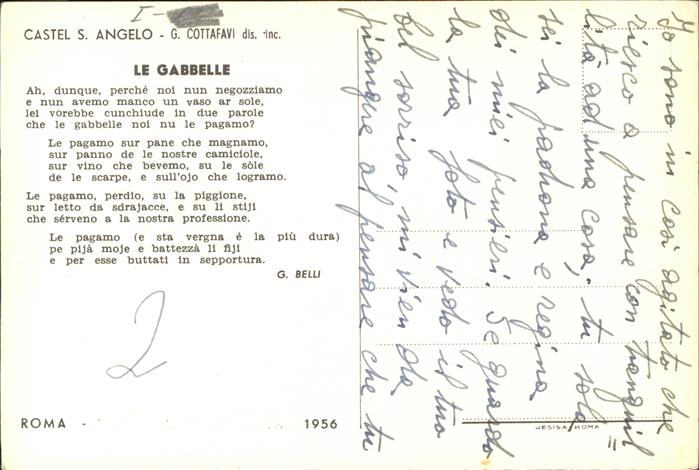 I-
CASTEL S. ANGELO - G. COTTAFAVI dis. inc.
LE GABBELLE
Ah, dunque, perché noi nun negozziamo
e nun avemo manco un vaso ar sole,
lei vorebbe cunchiude in due parole
che le gabbelle noi nu le pagamo?
Le pagamo sur pane che magnamo,
sur panno de le nostre camiciole,
sur vino che bevemo, su le sòle
de le scarpe, e sull'ojo che logramo.
Le pagamo, perdio, su la piggione,
sur letto da sdrajacce, e su li stiji
che sérveno a la nostra professione.
Le pagamo (e sta vergna é la più dura)
pe pijà moje e battezzà li fiji
e per esse buttati in sepportura.
G. BELLI
2
ROMA - 1956
JESISA, ROMA
Io sono in così agitato che
riesco a pensare con tranquil=
lità ad una cosa; tu sola
sei la padrona e regina
dei miei pensieri. Se guardo
la tua foto e vedo il tuo
bel sorriso, mi vien da
piangere al pensare che tu